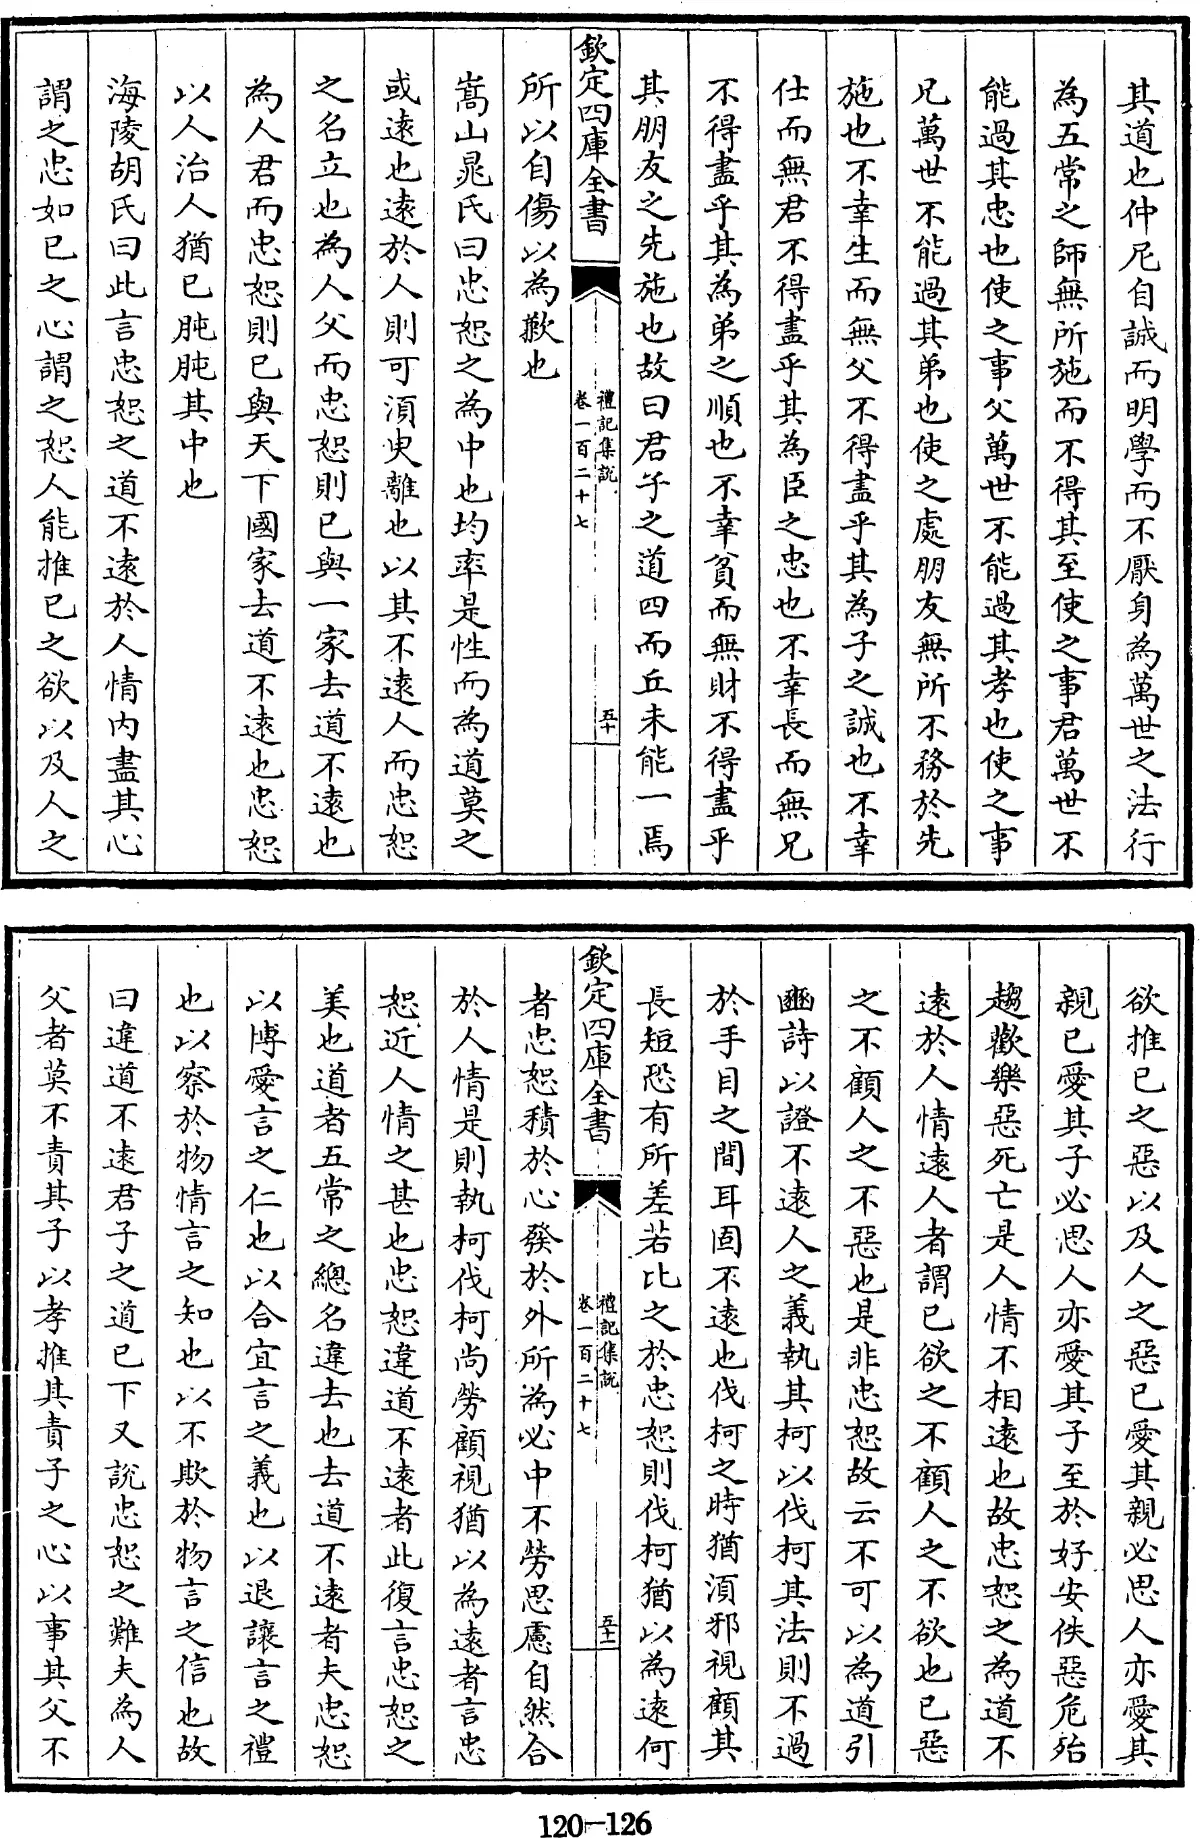 其道也仲尼自誠而明學而不厭身為萬世之法行
為五常之師無所施而不得其至使之事君萬世不
能過其忠也使之事父萬世不能過其孝也使之事
兄萬世不能過其弟也使之處朋友無所不務於先
施也不幸生而無父不得盡乎其為子之誠也不幸
仕而無君不得盡乎其為臣之忠也不幸長而無兄
不得盡乎其為弟之順也不幸貧而無財不得盡乎
其朋友之先施也故曰君子之道四而丘未能一焉
欽定四庫全書
禮記集說
卷一百二十七
五十
所以自傷以為歉也
嵩山晁氏曰忠恕之為中也均率是性而為道莫之
或遠也遠於人則可須臾離也以其不遠人而忠恕
之名立也為人父而忠恕則已與一家去道不遠也
為人君而忠恕則已與天下國家去道不遠也忠恕
以人治人猶已肫肫其中也
海陵胡氏曰此言忠恕之道不遠於人情內盡其心
謂之忠如已之心謂之恕人能推已之欲以及人之
欲推已之惡以及人之惡已愛其親必思人亦愛其
親已愛其子必思人亦愛其子至於好安佚惡危殆
趨歡樂惡死亡是人情不相遠也故忠恕之為道不
遠於人情遠人者謂已欲之不顧人之不欲也已惡
之不顧人之不惡也是非忠恕故云不可以為道引
豳詩以證不遠人之義執其柯以伐柯其法則不過
於手目之間耳固不遠也伐柯之時猶須邪視顧其
長短恐有所差若比之於忠恕則伐柯猶以為遠何
欽定四庫全書
禮記集說
卷一百二十七
五十一
者忠恕積於心發於外所為必中不勞思慮自然合
於人情是則執柯伐柯尚勞顧視猶以為遠者言忠
恕近人情之甚也忠恕違道不遠者此復言忠恕之
美也道者五常之總名違去也去道不遠者夫忠恕
以博愛言之仁也以合宜言之義也以退讓言之禮
也以察於物情言之知也以不欺於物言之信也故
曰違道不遠君子之道已下又說忠恕之難夫為人
父者莫不責其子以孝推其責子之心以事其父不
120-126